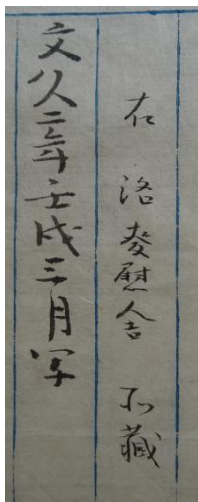 右 洛麥慰舎 所藏
文久二年壬戌三月写